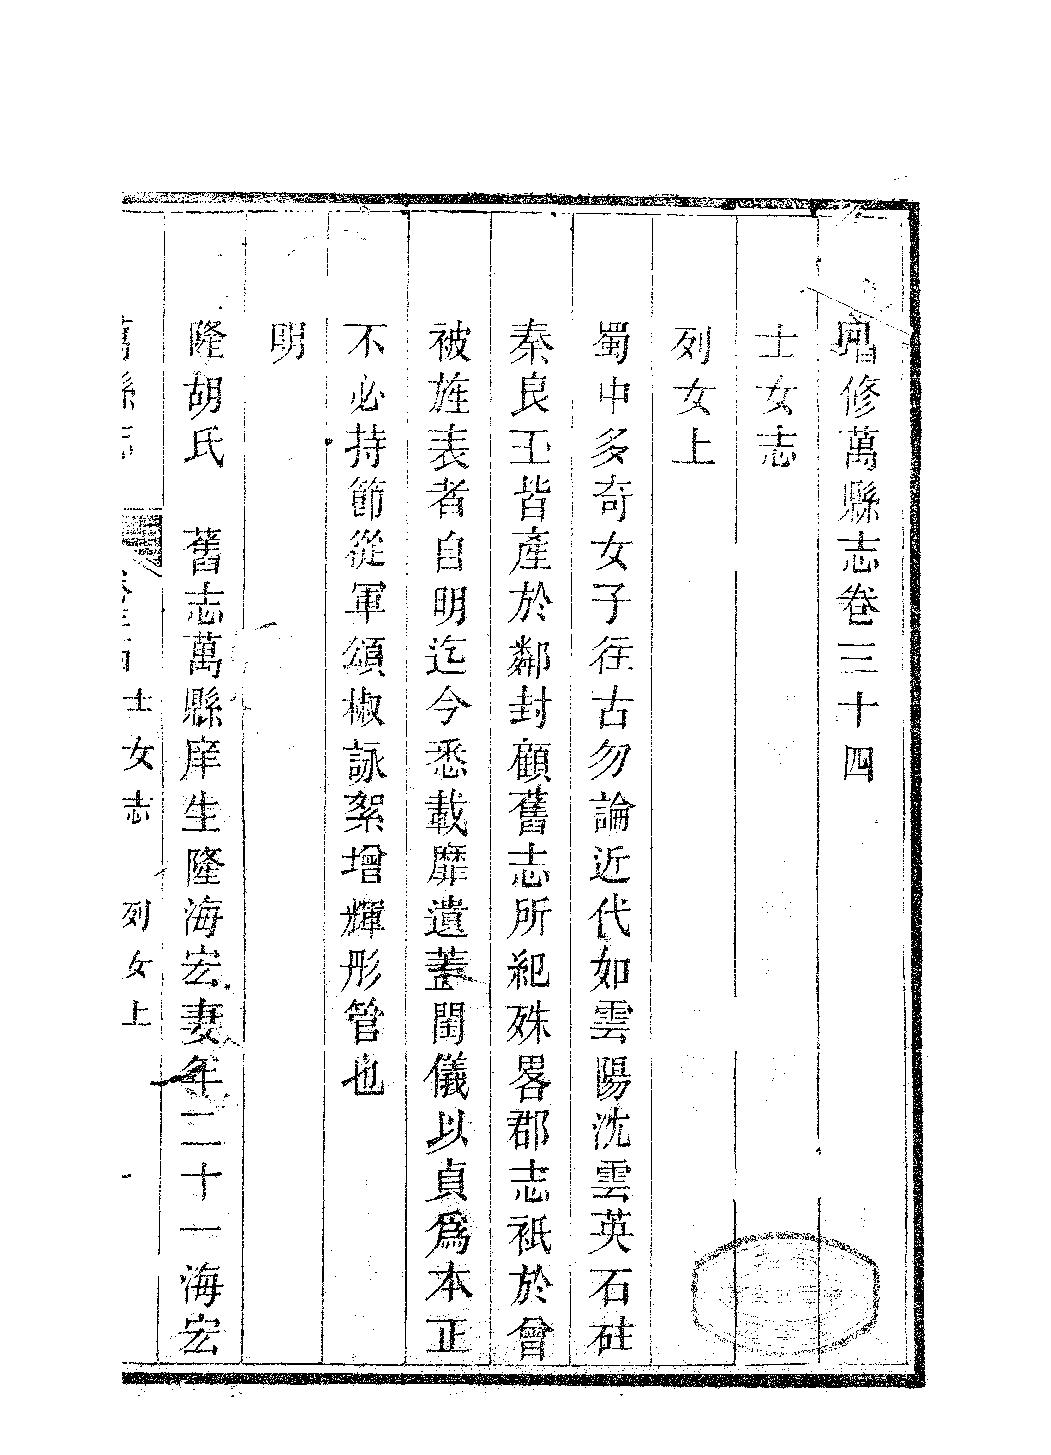 增修萬縣志卷三十四
士女志
列女上
蜀中多奇女子往古勿論近代如雲陽沈雲英石砫
秦良玉皆產於鄰封顧舊志所紀殊畧郡志祇於曾
被旌表者自明迄今悉載靡遺蓋閨儀以貞爲本正
不必持節從軍頌椒詠絮增輝彤管也
明
隆胡氏 舊志萬縣庠生隆海宏妻年二十一海宏
萬縣志 士女志 列女上